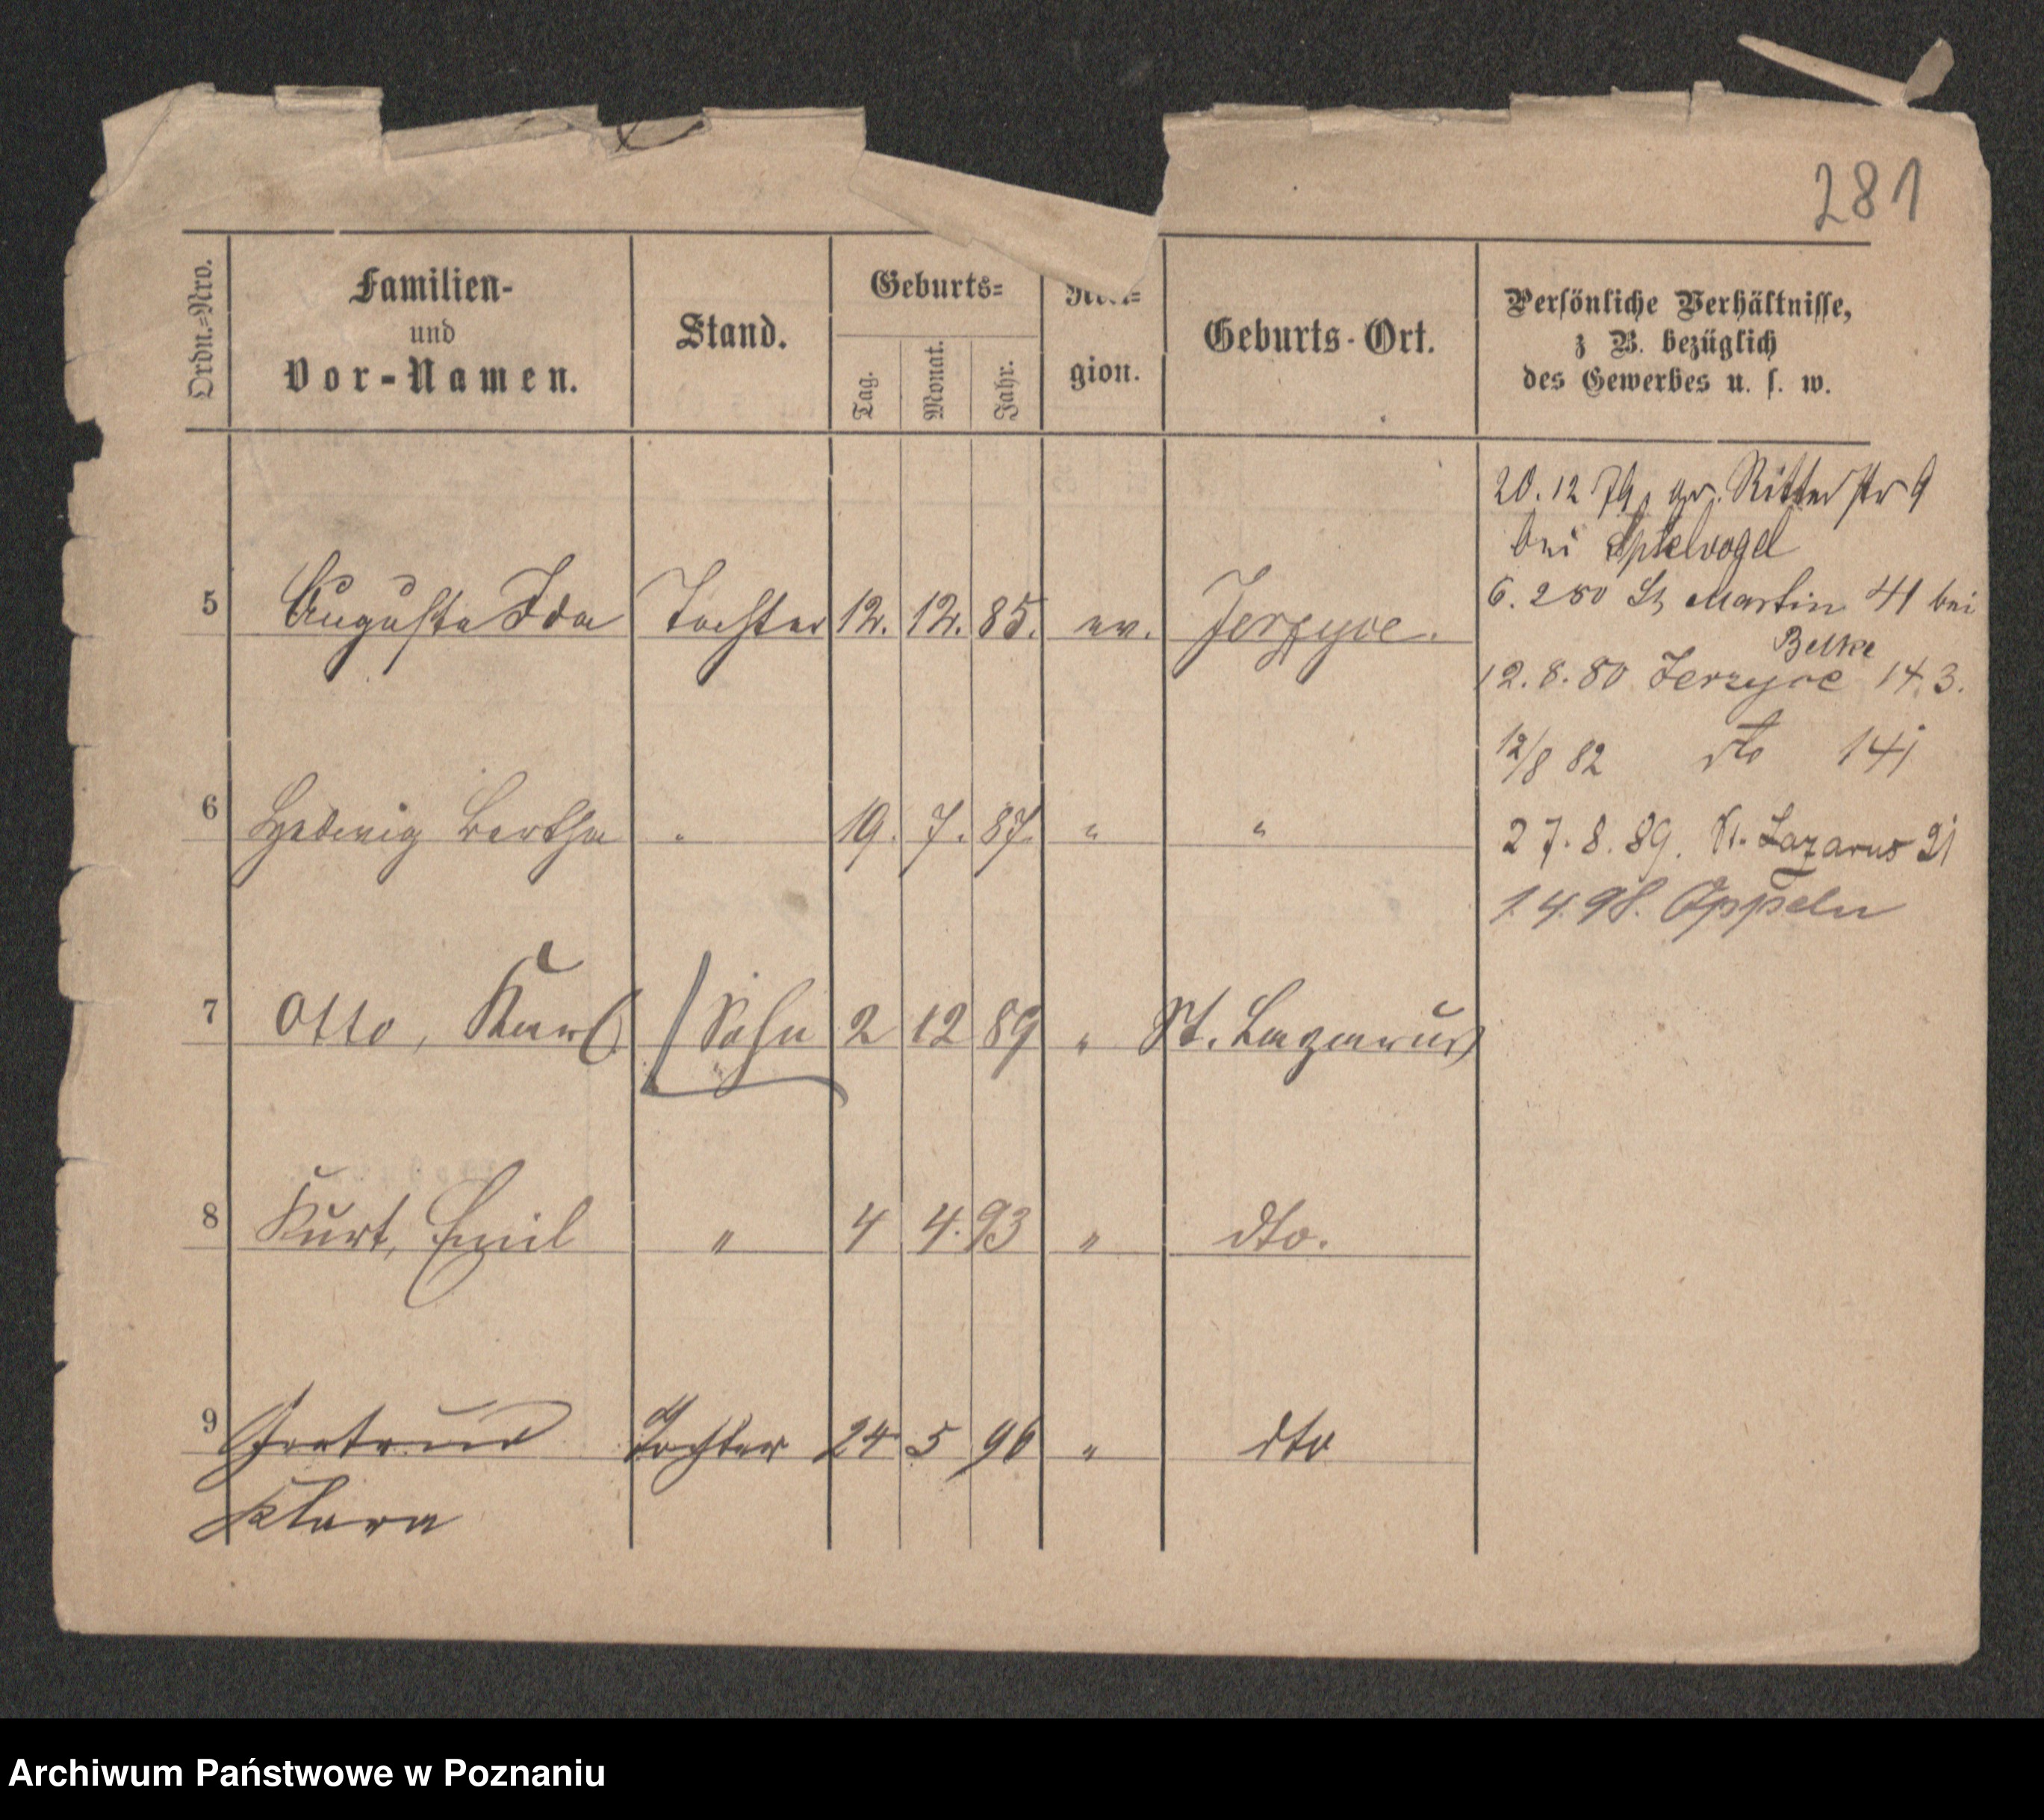 281
Ordn.=Nro.
Familien-
und
Vor-Namen.
Stand.
Geburts=
Tag.
Monat.
Jahr.
gion.
Geburts-Ort.
Persönliche Verhältnisse,
z B. bezüglich
des Gewerbes u. s. w.
20. 12 79, gr. Ritterstr 9
bei Spielvogel
6. 2 80 St Martin 41 bei
Belke
12. 8. 80 Jerzyce 143.
12/8 82 dto 141
27. 8. 89. St. Lazarus 21
1. 4. 98. Oppeln
5 Auguste Ida Tochter 12. 12. 85. ev. Jerzyce.
6 Hedwig Bertha " 19. 7. 87. " "
7 Otto, Karl Sohn 2 12 89 " St. Lazarus
8 Kurt, Emil " 4 4. 93 " dto.
9 Gertrud Tochter 24 5 96 " dto
Klara
Archiwum Państwowe w Poznaniu